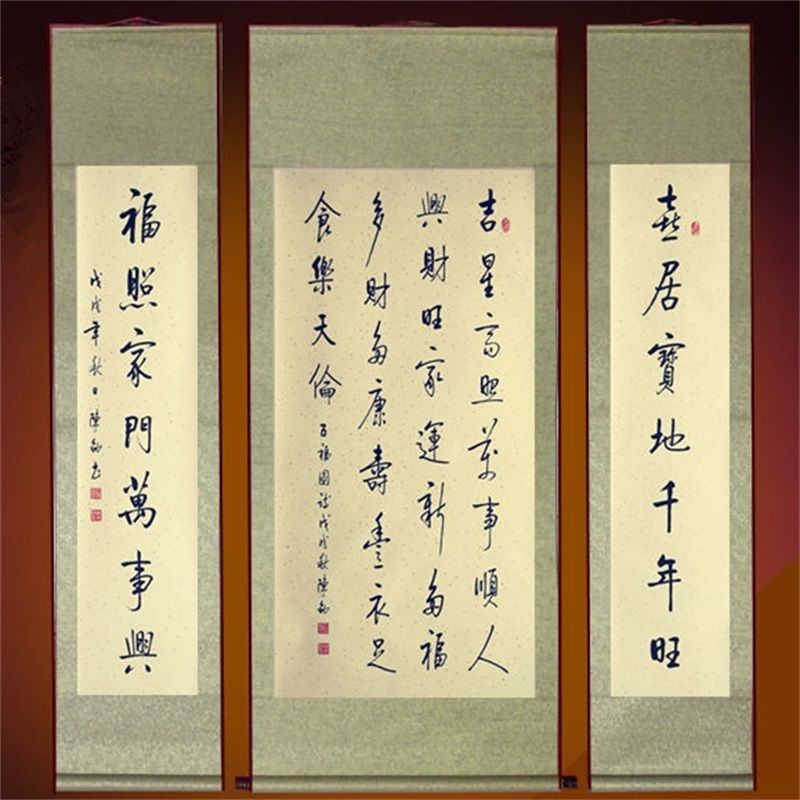 喜居寶地千年旺
吉星高照萬事順人
興財旺家運新多福
多財多康壽豐衣足
食樂天倫
百福圖詩戊戌秋陳
福照家門萬事興
戊戌年秋日陳書